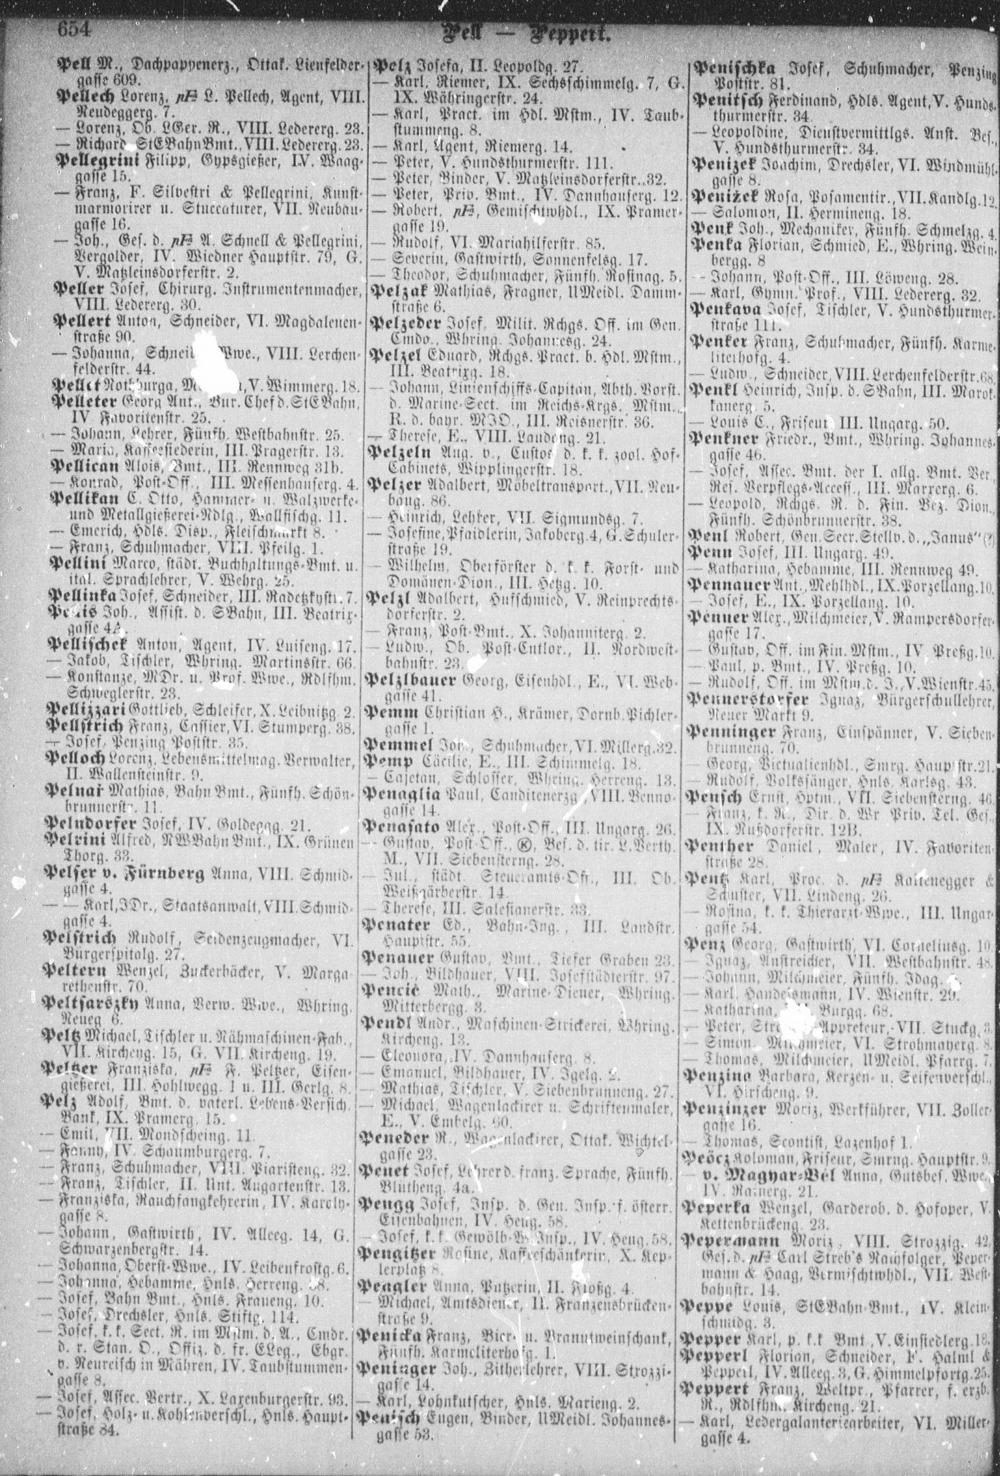 654
Pell — Peppert.
Pell M., Dachpappenerz., Ottak. Lienfelder-
gasse 609.
Pellech Lorenz, L. Pellech, Agent, VIII.
Neudeggerg. 7.
— Lorenz, Ob. LGer. R., VIII. Ledererg. 23.
— Richard StEBahnBmt., VIII. Ledererg. 23.
Pellegrini Filipp, Gypsgießer, IV. Waag-
gasse 15.
— Franz, F. Silvestri & Pellegrini, Kunst-
marmorirer u. Stuccaturer, VII. Neubau-
gasse 16.
— Joh., Ges. d. A. Schnell & Pellegrini,
Vergolder, IV. Wiedner Hauptstr. 79, G.
V. Matzleinsdorferstr. 2.
Peller Josef, Chirurg. Instrumentenmacher,
VIII. Ledererg. 30.
Pellert Anton, Schneider, VI. Magdalenen-
straße 90.
— Johanna, Wwe., VIII. Lerchen-
felderstr. 44.
Pellet Nothburga, V. Wimmerg. 18.
Pelleter Georg Ant., Bur. Chef d. StEBahn,
IV Favoritenstr. 25.
— Johann, Lehrer, Fünfh. Westbahnstr. 25.
— Maria, Kaffeesiederin, III. Pragerstr. 13.
Pellican Alois, Bmt., III. Rennweg 31b.
— Konrad, Post-Off., III. Messenhauserg. 4.
Pellikan C. Otto, Hammer- u. Walzwerks-
und Metallgießerei-Ndlg., Wallfischg. 11.
— Emerich, Hdls. Disp., Fleischmarkt 8.
— Franz, Schuhmacher, VIII. Pfeilg. 1.
Pellini Marco, städt. Buchhaltungs-Bmt. u.
ital. Sprachlehrer, V. Wehrg. 25.
Pellinka Josef, Schneider, III. Radetzkystr. 7.
Joh., Assist. d. SBahn, III. Beatrix-
gasse 4A.
Pellischek Anton, Agent, IV. Luiseng. 17.
— Jakob, Tischler, Whring. Martinsstr. 66.
— Konstanze, MDr. u. Prof. Wwe., Rdlfhm.
Schweglerstr. 23.
Pellizzari Gottlieb, Schleifer, X. Leibnitzg. 2.
Pellstrich Franz, Cassier, VI. Stumperg. 38.
— Josef, Penzing Poststr. 35.
Pelloch Lorenz, Lebensmittelmag. Verwalter,
II. Wallensteinstr. 9.
Pelnař Mathias, Bahn Bmt., Fünfh. Schön-
brunnerstr. 11.
Pelndorfer Josef, IV. Goldeggg. 21.
Pelrini Alfred, NWBahn Bmt., IX. Grünen
Thorg. 33.
Pelser v. Fürnberg Anna, VIII. Schmid-
gasse 4.
— — Karl, JDr., Staatsanwalt, VIII. Schmid-
gasse 4.
Pelstrich Rudolf, Seidenzeugmacher, VI.
Bürgerspitalg. 27.
Peltern Wenzel, Zuckerbäcker, V. Marga-
rethenstr. 70.
Peltsarszky Anna, Verw. Wwe., Whring.
Neueg 6.
Peltz Michael, Tischler u. Nähmaschinen-Fab.,
VII. Kircheng. 15, G. VII. Kircheng. 19.
Peltzer Franziska, F. Peltzer, Eisen-
gießerei, III. Hohlwegg. 1 u. III. Gerlg. 8.
Pelz Adolf, Bmt. d. vaterl. Lebens-Versich.
Bank, IX. Pramerg. 15.
— Emil, VII. Mondscheing. 11.
— Fanny, IV. Schaumburgerg. 7.
— Franz, Schuhmacher, VIII. Piaristeng. 32.
— Franz, Tischler, II. Unt. Augartenstr. 13.
— Franziska, Rauchfangkehrerin, IV. Karoly-
gasse 8.
— Johann, Gastwirth, IV. Alleeg. 14, G.
Schwarzenbergstr. 14.
— Johanna, Oberst-Wwe., IV. Leibenfrostg. 6.
— Johanna, Hebamme, Hnls. Herreng.
— Josef, Bahn Bmt., Hnls. Fraueng. 10.
— Josef, Drechsler, Hnls. Stiftg. 114.
— Josef, k. k. Sect. R. im Mstm. d. A., Cmdr.
d. r. Stan. O., Offiz. d. fr. ELeg., Ehgr.
v. Neureisch in Mähren, IV. Taubstummen-
gasse 8.
— Josef, Assec. Vertr., X. Laxenburgerstr. 93.
— Josef, Holz- u. Kohlenverschl., Hnls. Haupt-
straße 84.
Pelz Josefa, II. Leopoldg. 27.
— Karl, Riemer, IX. Sechsschimmelg. 7, G.
IX. Währingerstr. 24.
— Karl, Pract. im Hdl. Mstm., IV. Taub-
stummeng. 8.
— Karl, Agent, Riemerg. 14.
— Peter, V. Hundsthurmerstr. 111.
— Peter, Binder, V. Matzleinsdorferstr. 32.
— Peter, Priv. Bmt., IV. Dannhauserg. 12.
— Robert, Gemischtwhdl., IX. Pramer-
gasse 19.
— Rudolf, VI. Mariahilferstr. 85.
— Severin, Gastwirth, Sonnenfelsg. 17.
— Theodor, Schuhmacher, Fünfh. Rosinag. 5.
Pelzak Mathias, Fragner, UMeidl. Damm-
straße 6.
Pelzeder Josef, Milit. Rchgs. Off. im Gen.
Cmdo., Whring. Johannesg. 24.
Pelzel Eduard, Rchgs. Pract. b. Hdl. Mstm.,
III. Beatrixg. 18.
— Johann, Linienschiffs-Capitan, Abth. Vorst.
d. Marine-Sect. im Reichs-Krgs. Mstm.,
R. d. bayr. MJO., III. Reisnerstr. 36.
— Therese, E., VIII. Laudong. 21.
Pelzeln Aug. v., Custos d. k. k. zool. Hof-
Cabinets, Wipplingerstr. 18.
Pelzer Adalbert, Möbeltransport., VII. Neu-
baug. 86.
— Heinrich, Lehrer, VII. Sigmundsg. 7.
— Josefine, Pfaidlerin, Jakoberg. 4, G. Schuler-
straße 19.
— Wilhelm, Oberförster d. k. k. Forst- und
Domänen-Dion., III. Hetzg. 10.
Pelzl Adalbert, Hufschmied, V. Reinprechts-
dorferstr. 2.
— Franz, Post-Bmt., X. Johanniterg. 2.
— Ludw., Ob. Post-Cntlor., II. Nordwest-
bahnstr. 23.
Pelzlbauer Georg, Eisenhdl., E., VI. Web-
gasse 41.
Pemm Christian H., Krämer, Dornb. Pichler-
gasse 1.
Pemmel Joh., Schuhmacher, VI. Millerg. 32.
Pemp Cäcilie, E., III. Schimmelg. 18.
— Cajetan, Schlosser, Whring. Herreng. 13.
Penaglia Paul, Canditenerzg VIII. Benno-
gasse 14.
Penasato Alex., Post-Off., III. Ungarg. 26.
— Gustav, Post-Off., Ⓚ, Bes. d. tir. L. Verth.
M., VII. Siebensterng. 28.
— Jul., städt. Steueramts-Off., III. Ob.
Weißgärberstr. 14.
— Therese, III. Salesianerstr. 33.
Penater Ed., Bahn-Ing., III. Landstr.
Hauptstr. 55.
Penauer Gustav, Bmt., Tiefer Graben 23.
— Joh., Bildhauer, VIII. Josefstädterstr. 97.
Pencic Math., Marine-Diener, Whring.
Mitterbergg. 3.
Pendl Andr., Maschinen-Strickerei, Whring.
Kircheng. 13.
— Eleonora, IV. Dannhauserg. 8.
— Emanuel, Bildhauer, IV. Igelg. 2.
— Mathias, Tischler, V. Siebenbrunneng. 27.
— Michael, Wagenlackirer u. Schriftenmaler,
E., V. Embelg. 60.
Peneder R., Wagenlackirer, Ottak. Wichtel-
gasse 23.
Penet Josef, Lehrer d. franz. Sprache, Fünfh.
Blütheng. 4a.
Pengg Josef, Insp. d. Gen. Insp. f. österr.
Eisenbahnen, IV. Heug. 58.
— Josef, k. k. Gewölb-W. Insp., IV. Heug. 58.
Pengitzer Rosine, Kaffeeschänkerin, X. Kep-
lerplatz 8.
Penglev Anna, Putzerin, II. Floßg. 4.
— Michael, Amtsdiener, II. Franzensbrücken-
straße 9.
Penicka Franz, Bier- u. Branntweinschank,
Fünfh. Karmeliterhofg. 1.
Peninger Joh., Zitherlehrer, VIII. Strozzi-
gasse 14.
— Karl, Lohnkutscher, Hnls. Marieng. 2.
Penisch Eugen, Binder, UMeidl. Johannes-
gasse 53.
Penischka Josef, Schuhmacher, Penzing
Poststr. 81.
Penitsch Ferdinand, Hdls. Agent, V. Hunds-
thurmerstr. 34.
— Leopoldine, Dienstvermittlgs. Anst. Bes.,
V. Hundsthurmerstr. 34.
Penizek Joachim, Drechsler, VI. Windmühl-
gasse 8.
Penižek Rosa, Posamentir., VII. Kandlg. 12.
— Salomon, II. Hermineng. 18.
Penk Joh., Mechaniker, Fünfh. Schmelzg. 4.
Penka Florian, Schmied, E., Whring. Wein-
bergg. 8
— Johann, Post-Off., III. Löweng. 28.
— Karl, Gymn. Prof., VIII. Ledererg. 32.
Penkava Josef, Tischler, V. Hundsthurmer-
straße 111.
Penker Franz, Schuhmacher, Fünfh. Karme-
literhofg. 4.
— Ludw., Schneider, VIII. Lerchenfelderstr. 68.
Penkl Heinrich, Insp. d. SBahn, III. Marok-
kanerg. 5.
— Louis C., Friseur III. Ungarg. 50.
Penkner Friedr., Bmt., Whring. Johannes-
gasse 46.
— Josef, Assec. Bmt. der I. allg. Bmt. Ver.
Res. Verpflegs-Access., III. Marxerg. 6.
— Leopold, Rchgs. R. d. Fin. Bez. Dion.,
Fünfh. Schönbrunnerstr. 38.
Penl Robert, Gen. Secr. Stellv. d. „Janus“
Penn Josef, III. Ungarg. 49.
— Katharina, Hebamme, III. Rennweg 49.
Pennauer Ant., Mehlhdl., IX. Porzellang. 10.
— Josef, E., IX. Porzellang. 10.
Penner Alex., Milchmeier, V. Rampersdorfer-
gasse 17.
— Gustav, Off. im Fin. Mstm., IV. Preßg. 10.
— Paul, p. Bmt., IV. Preßg. 10.
— Rudolf, Off. im Mstm. d. J., V. Wienstr. 45.
Pennerstorfer Ignaz, Bürgerschullehrer,
Neuer Markt 9.
Penninger Franz, Einspänner, V. Sieben-
brunneng. 70.
— Georg, Victualienhdl., Smrg. Hauptstr. 21.
— Rudolf, Volkssänger, Hnls. Karlsg. 43.
Pensch Ernst, Hptm., VII. Siebensterng. 46.
— Franz, k. R., Dir. d. Wr Priv. Tel. Ges.,
IX. Nußdorferstr. 12B.
Penther Daniel, Maler, IV. Favoriten-
straße 28.
Pentz Karl, Proc. d. Kaltenegger &
Schuster, VII. Lindeng. 26.
— Rosina, k. k. Thierarzt-Wwe., III. Ungar-
gasse 54.
Penz Georg, Gastwirth, VI. Corneliusg. 10.
— Ignaz, Anstreicher, VII. Westbahnstr. 48.
— Johann, Milchmeier, Fünfh. Idag.
— Karl, Handelsmann, IV. Wienstr. 29.
— Katharina, Burgg. 68.
— Peter, Appreteur, VII. Stuckg. 3.
— Simon, Milchmeier, VI. Strohmayerg. 8.
— Thomas, Milchmeier, UMeidl. Pfarrg. 7.
Penzina Barbara, Kerzen- u. Seifenverschl.,
VI. Hirscheng. 9.
Penzinzer Moriz, Werkführer, VII. Zoller-
gasse 16.
— Thomas, Scontist, Lazenhof 1.
Peócz Koloman, Friseur, Smrng. Hauptstr. 9.
— v. Magyar-Bél Anna, Gutsbes. Wwe.,
IV. Rainerg. 21.
Peperka Wenzel, Garderob. d. Hofoper, V.
Kettenbrückeng. 23.
Pepermann Moriz, VIII. Strozzig. 42,
Ges. d. Carl Streb's Nachfolger, Peper-
mann & Haag, Vermischtwhdl., VII. West-
bahnstr. 14.
Peppe Louis, StEBahn-Bmt., IV. Klein-
schmidg. 3.
Pepper Karl, p. k. k Bmt., V. Einsiedlerg. 18.
Pepperl Florian, Schneider, F. Halml &
Pepperl, IV. Alleeg. 3, G. Himmelpfortg. 25.
Peppert Franz, Weltpr., Pfarrer, f. erzb.
R., Rdlfhm. Kircheng. 21.
— Karl, Ledergalanteriearbeiter, VI. Miller-
gasse 4.